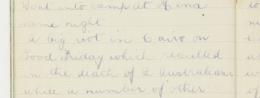 Went into camp at Mena
same night
a big riot in Cairo on
Good Friday which resulted
in the death of 2 Australians
while a number of other